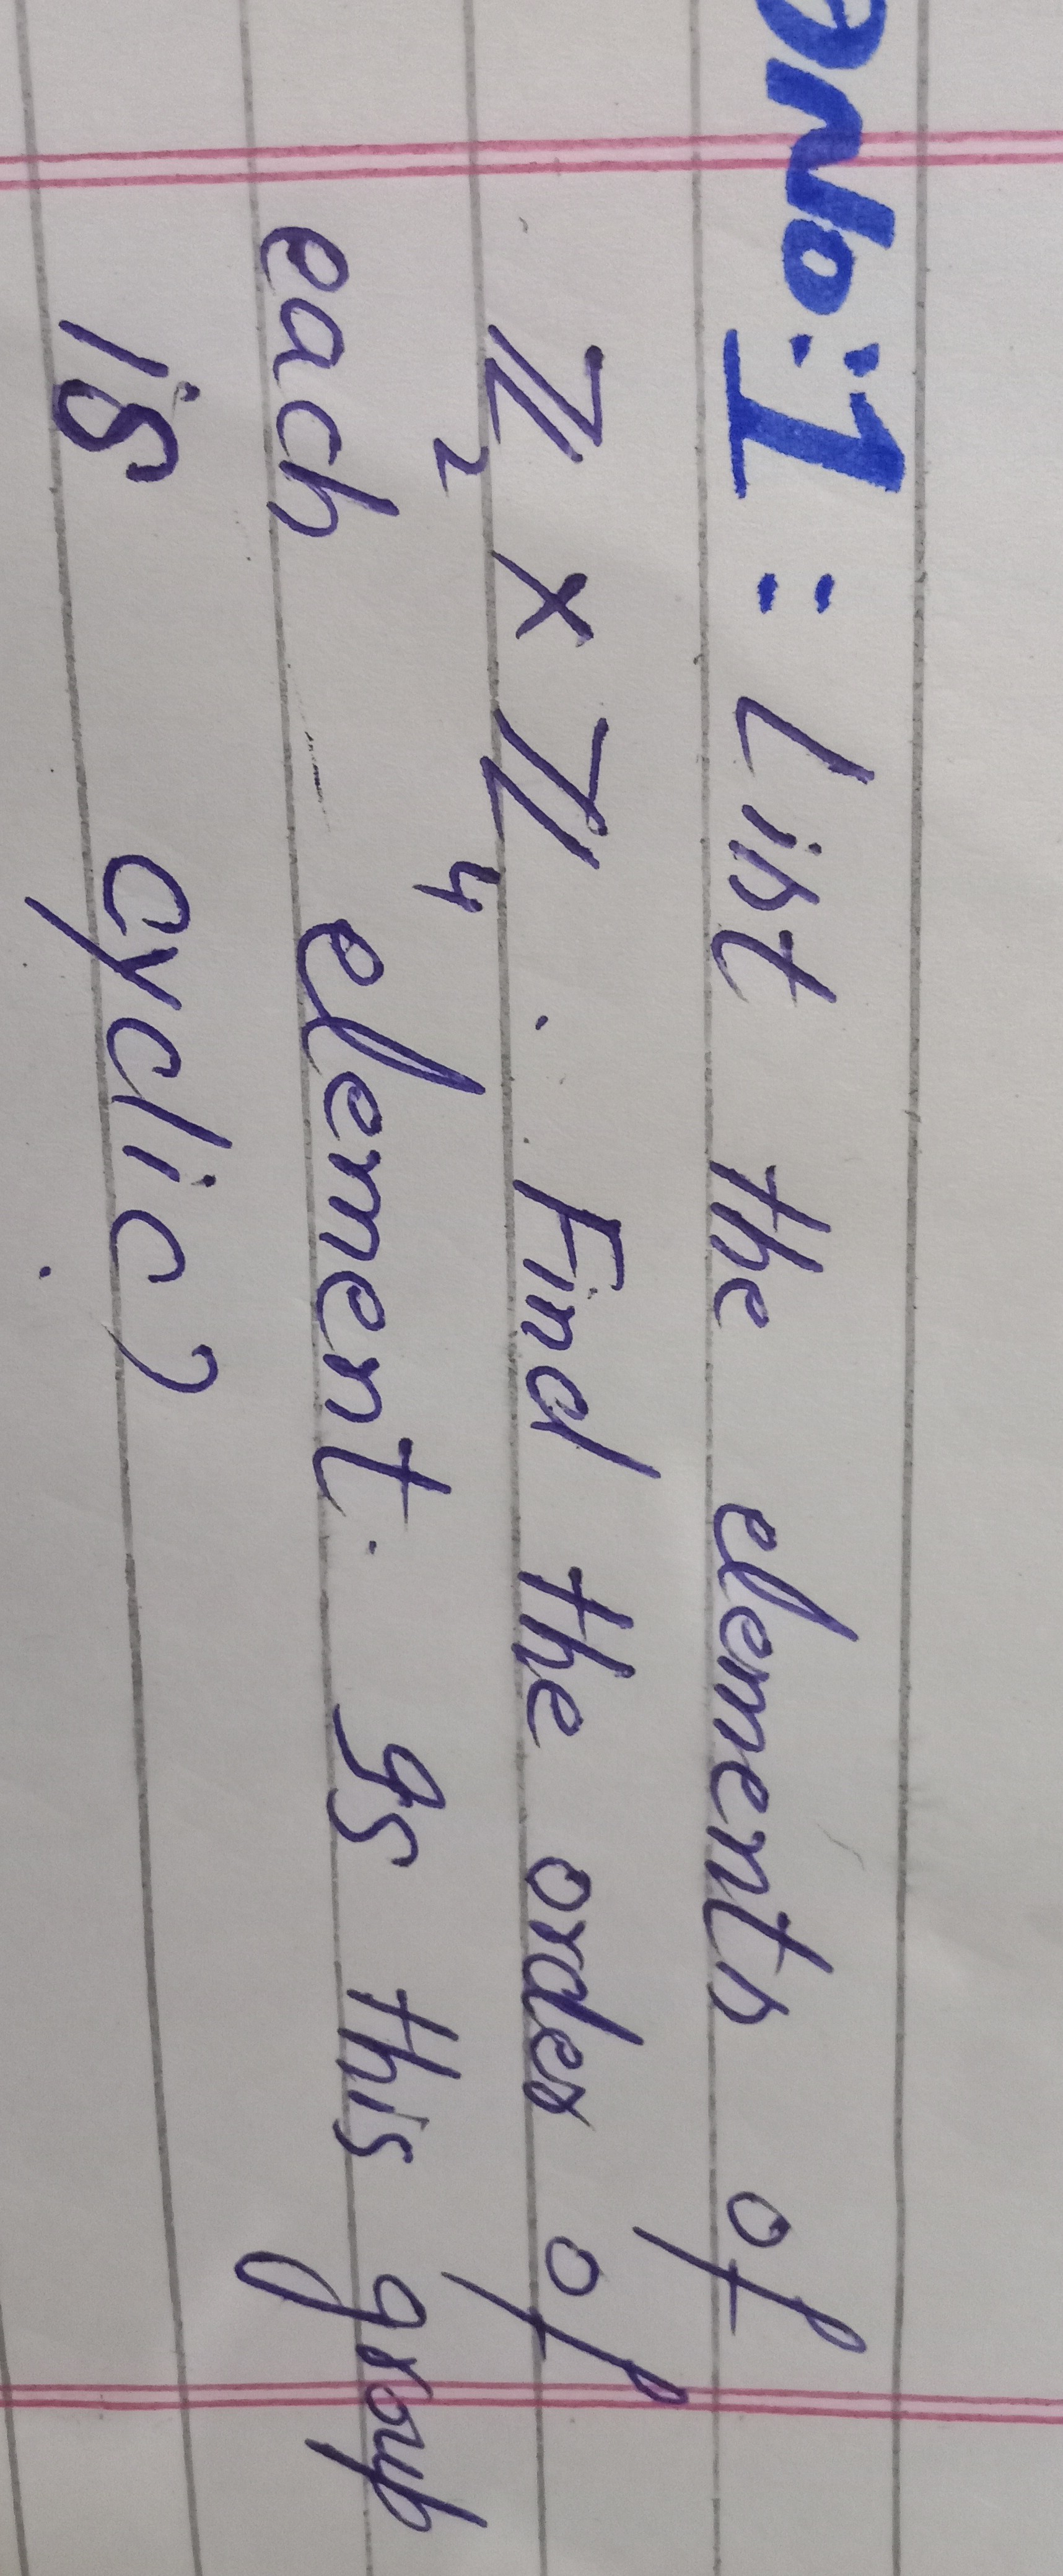 QNo:1: List the elements of
ℤ₂ × ℤ₄. Find the order of
each element. Is this group
is cyclic?